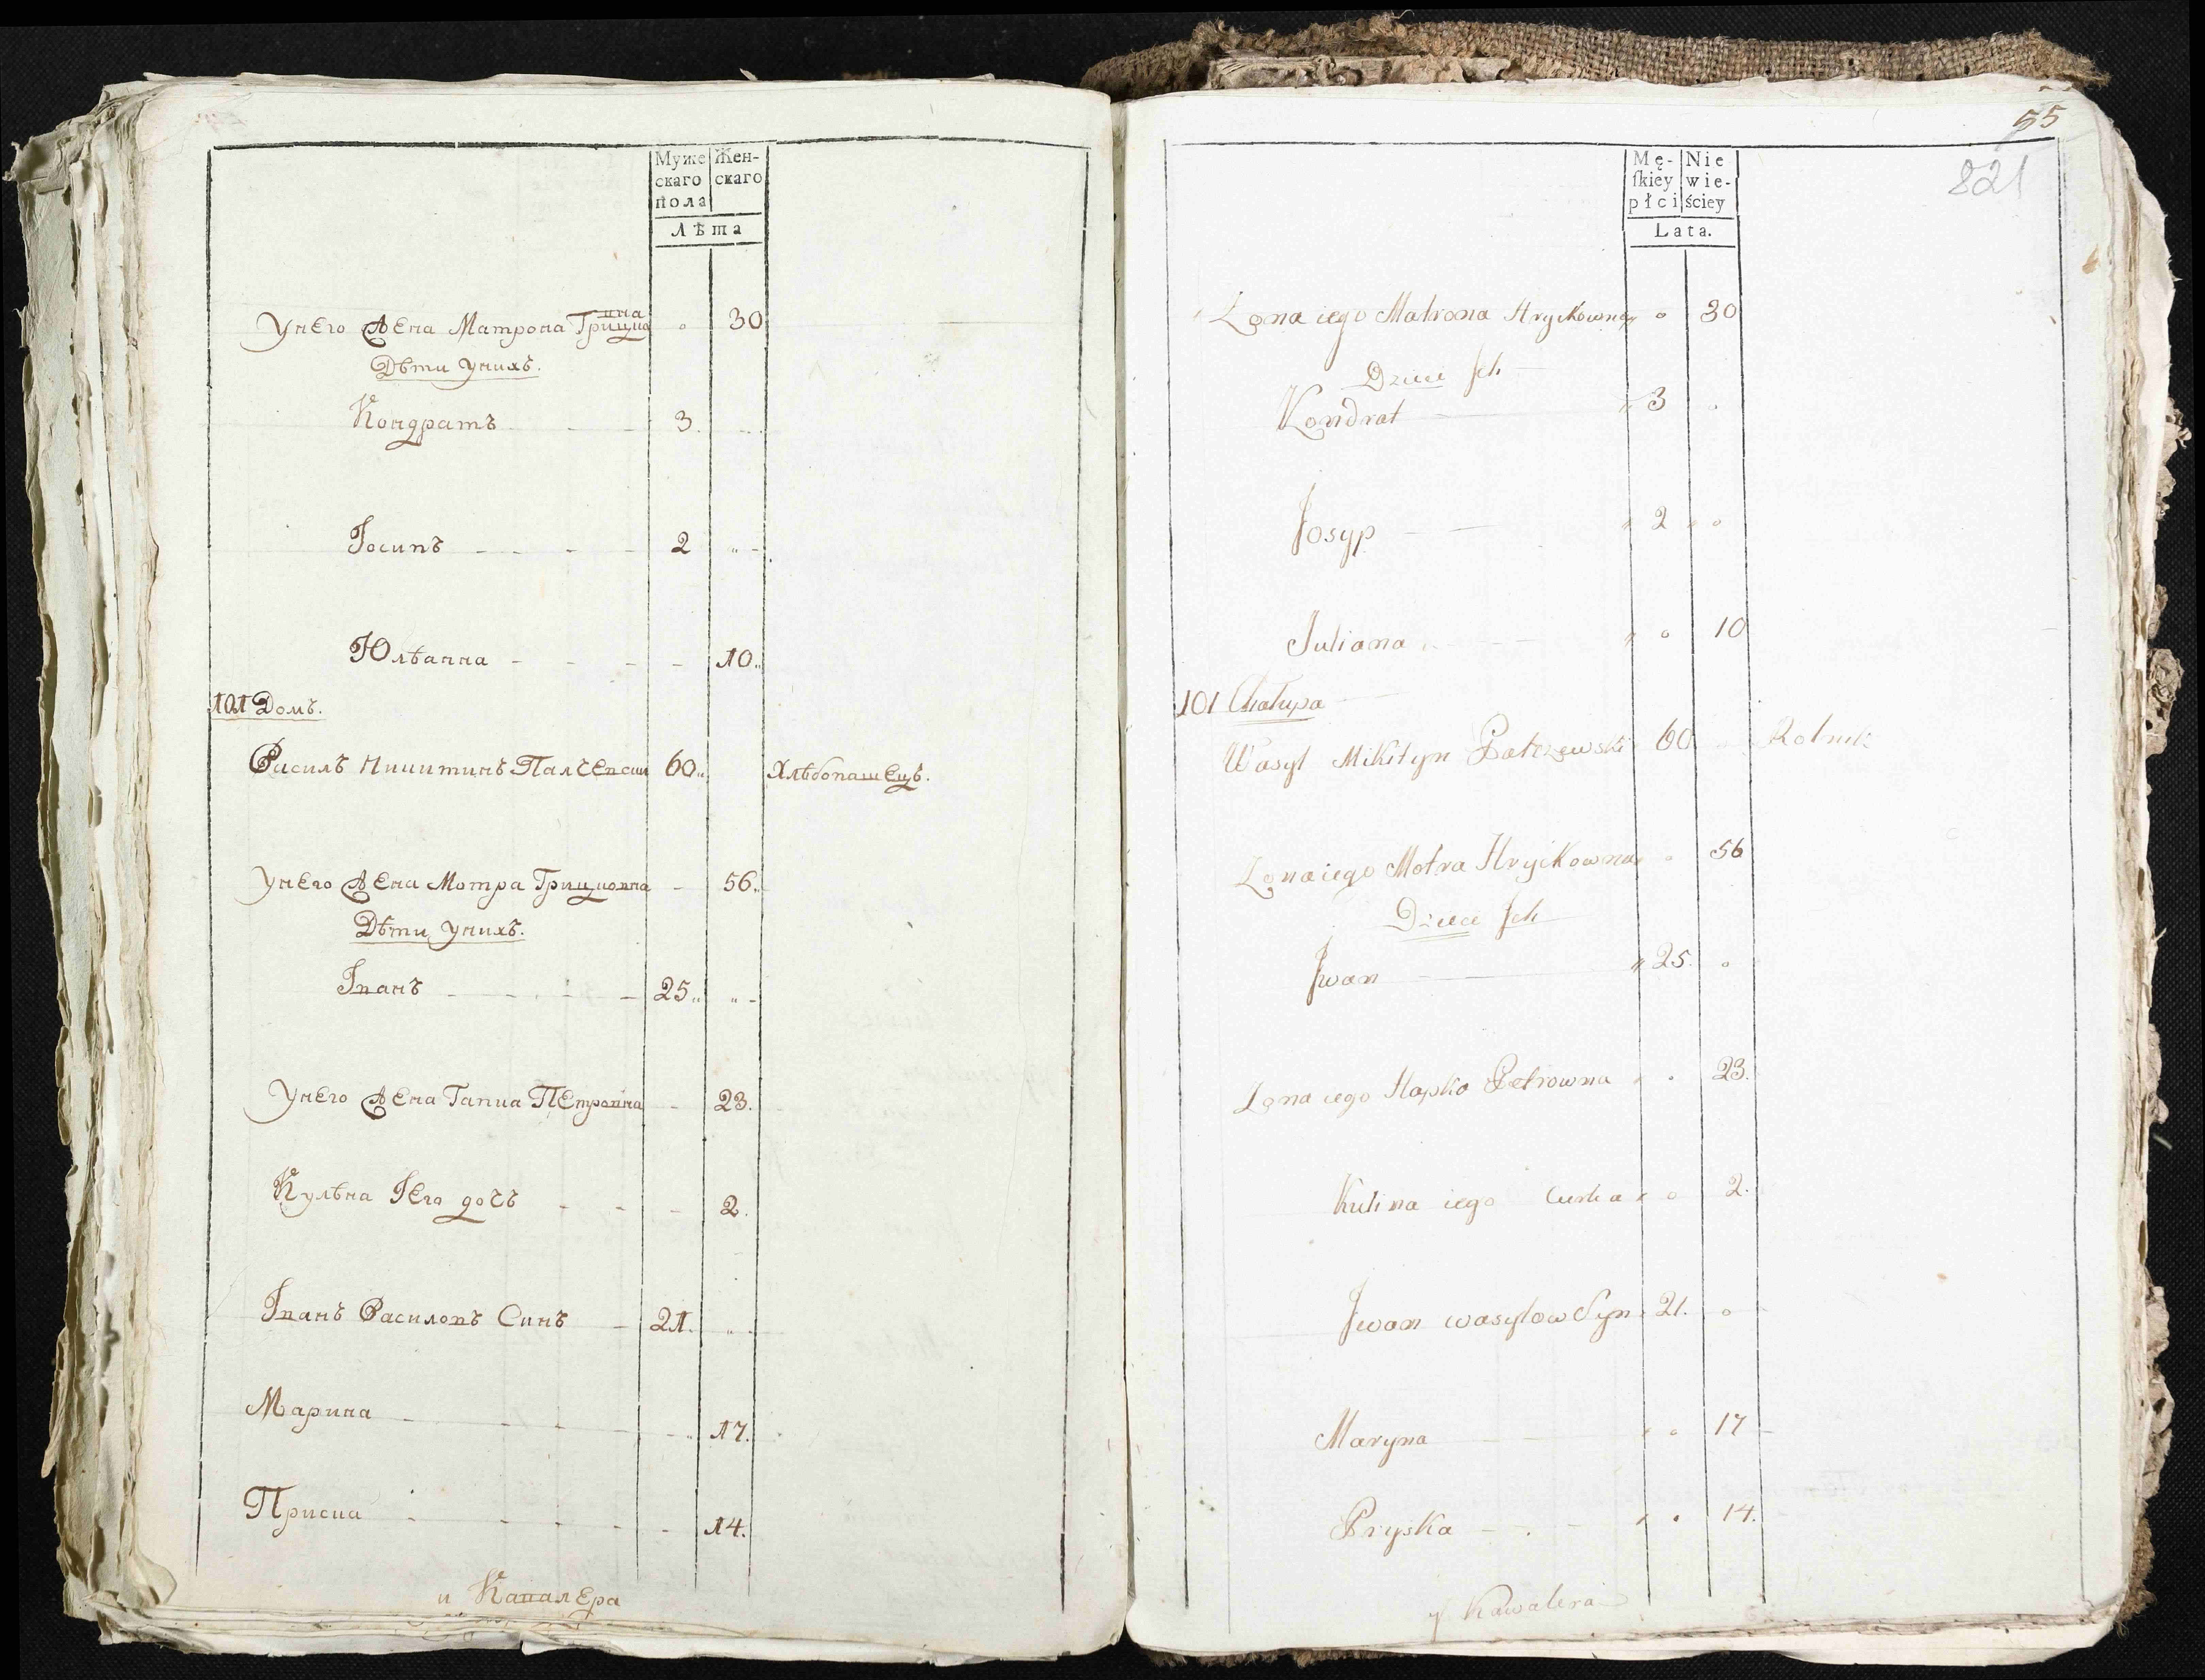 Муже Жен-
скаго скаго
пола
Лѣта
Унего жена Матрона Грицко
вна
30
Дѣти унихъ.
Кондратъ 3.
Іосипъ 2
Юлѣанна 10.
101 Домъ.
Василъ Никитинъ Палчевски 60. Хлѣбопашецъ.
Унего жена Мотра Грицковна 56.
Дѣти унихъ.
Іванъ 25.
Унего жена Гапка Петровна 23.
Кулѣна Іего дочъ 2.
Іванъ Василовъ Синъ 21.
Марина 17.
Приска 14.
и Кавалера
55
821
Mę- Nie
ſkiey wie-
płci ściey
Lata.
Zona iego Matrona Hryckowna 0 30
Dzieci Jch
Kondrat 3 0
Josyp 2 0
Juliana 0 10
101 Chałupa
Wasyl Mikityn Palczewski 60 Rolnik
Zona iego Motra Hryckowna 56
Dzieci Jch
Jwan 25. 0
Zona iego Hapka Petrowna 23.
Kulina iego Curka 0 2.
Jwan wasylow Syn 21. 0
Maryna 0 17
Pryska 14.
y Kawalera